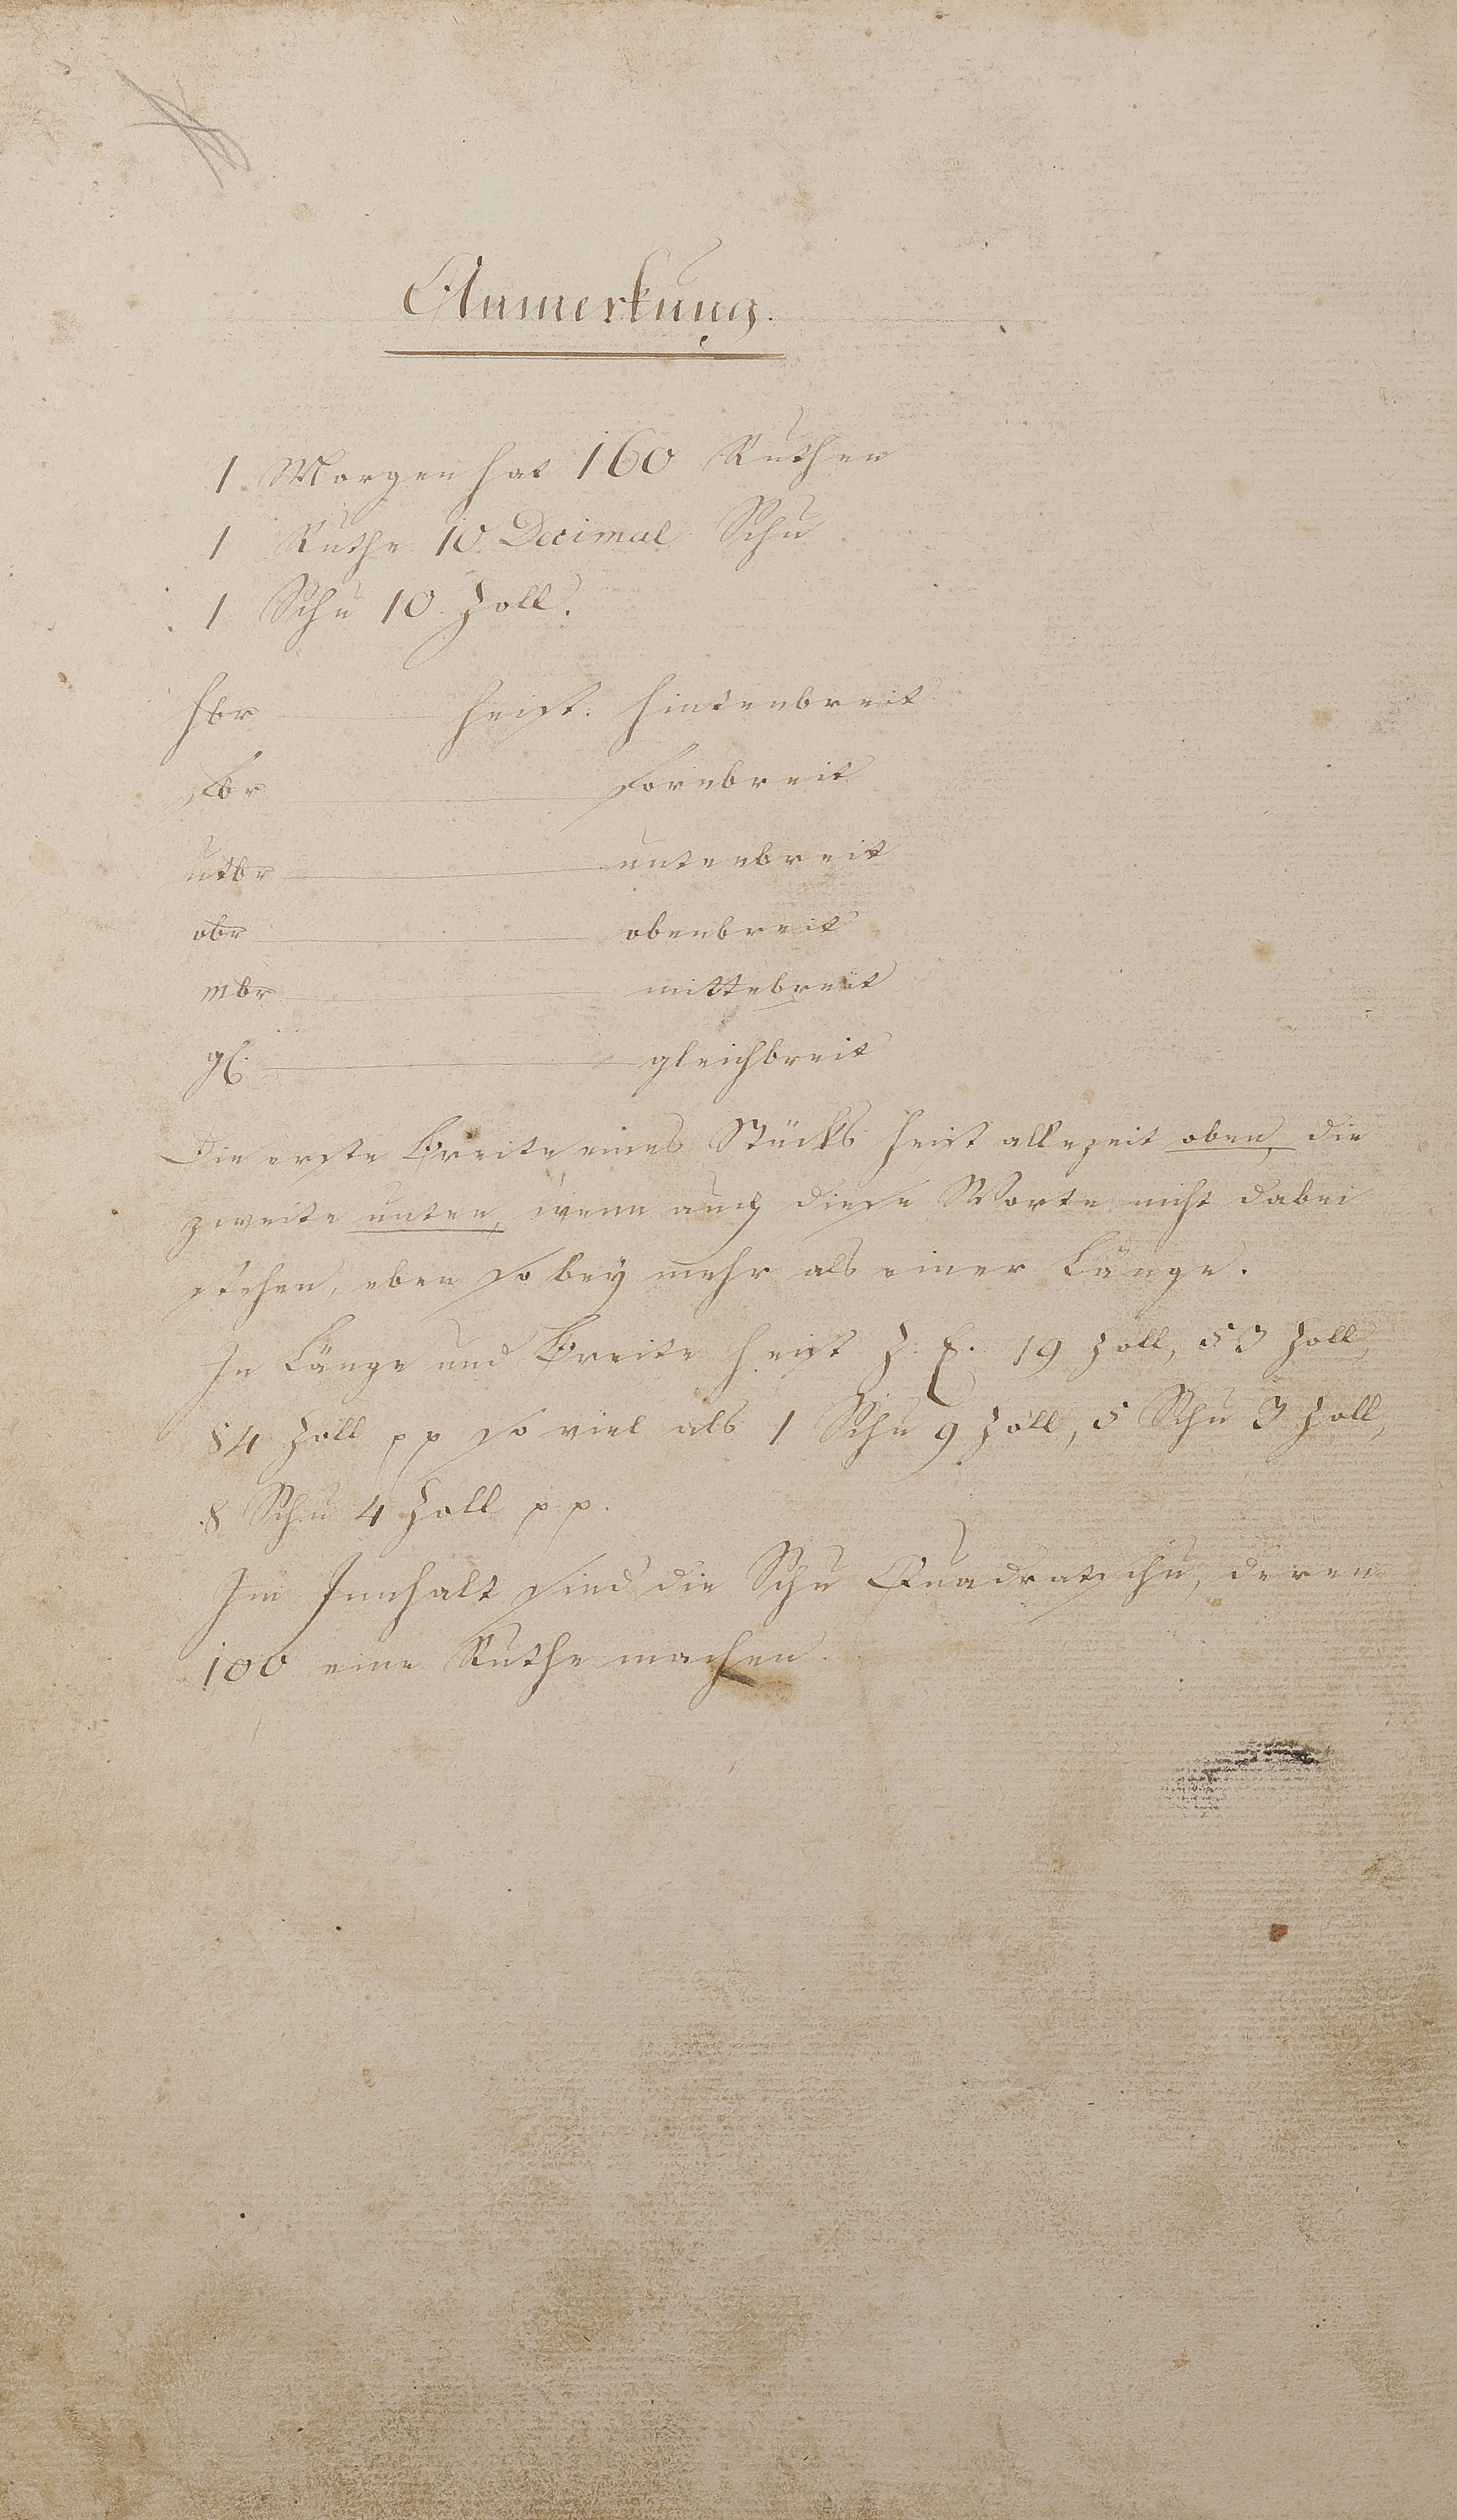 Anmerkung.
1 Morgen hat 160 Ruthen
1 Ruthe 10 Decimal Schu
1 Schu 10 Zoll.
hbr heist. hintenbreit
fbr fornbreit
utbr untenbreit
obr obenbreit
mbr mittebreit
gl. gleichbreit
Die erste Breite eines Stücks heist allezeit oben, die
zweite unten, wenn auch diese Worte nicht dabei
stehen, eben so bey mehr als einer Länge.
In Länge und Breite heist z. E. 19 Zoll, 53 Zoll,
84 Zoll pp so viel als 1 Schu 9 Zoll, 5 Schu 3 Zoll,
8 Schu 4 Zoll pp.
Im Innhalt sind die Schu Quadratschu, deren
100 eine Ruthe machen.